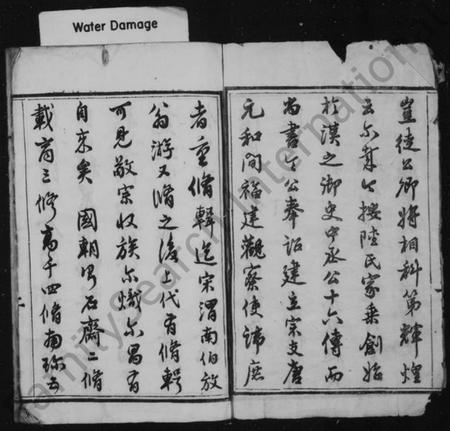 Water Damage
豈徒公卿將相科第輝煌
云尔哉今按陸氏家乘創始
於漢之御史中丞公十六傳而
尚書令公奉詔建立宗支唐
元和間福建觀察使諱庶
者重脩輯迄宋渭南伯放
翁游又脩之後之代有脩輯
可見敬宗收族尓熾尓昌有
自來矣 國朝 石齋二脩
載商三修 千四脩南
FamilySearch International